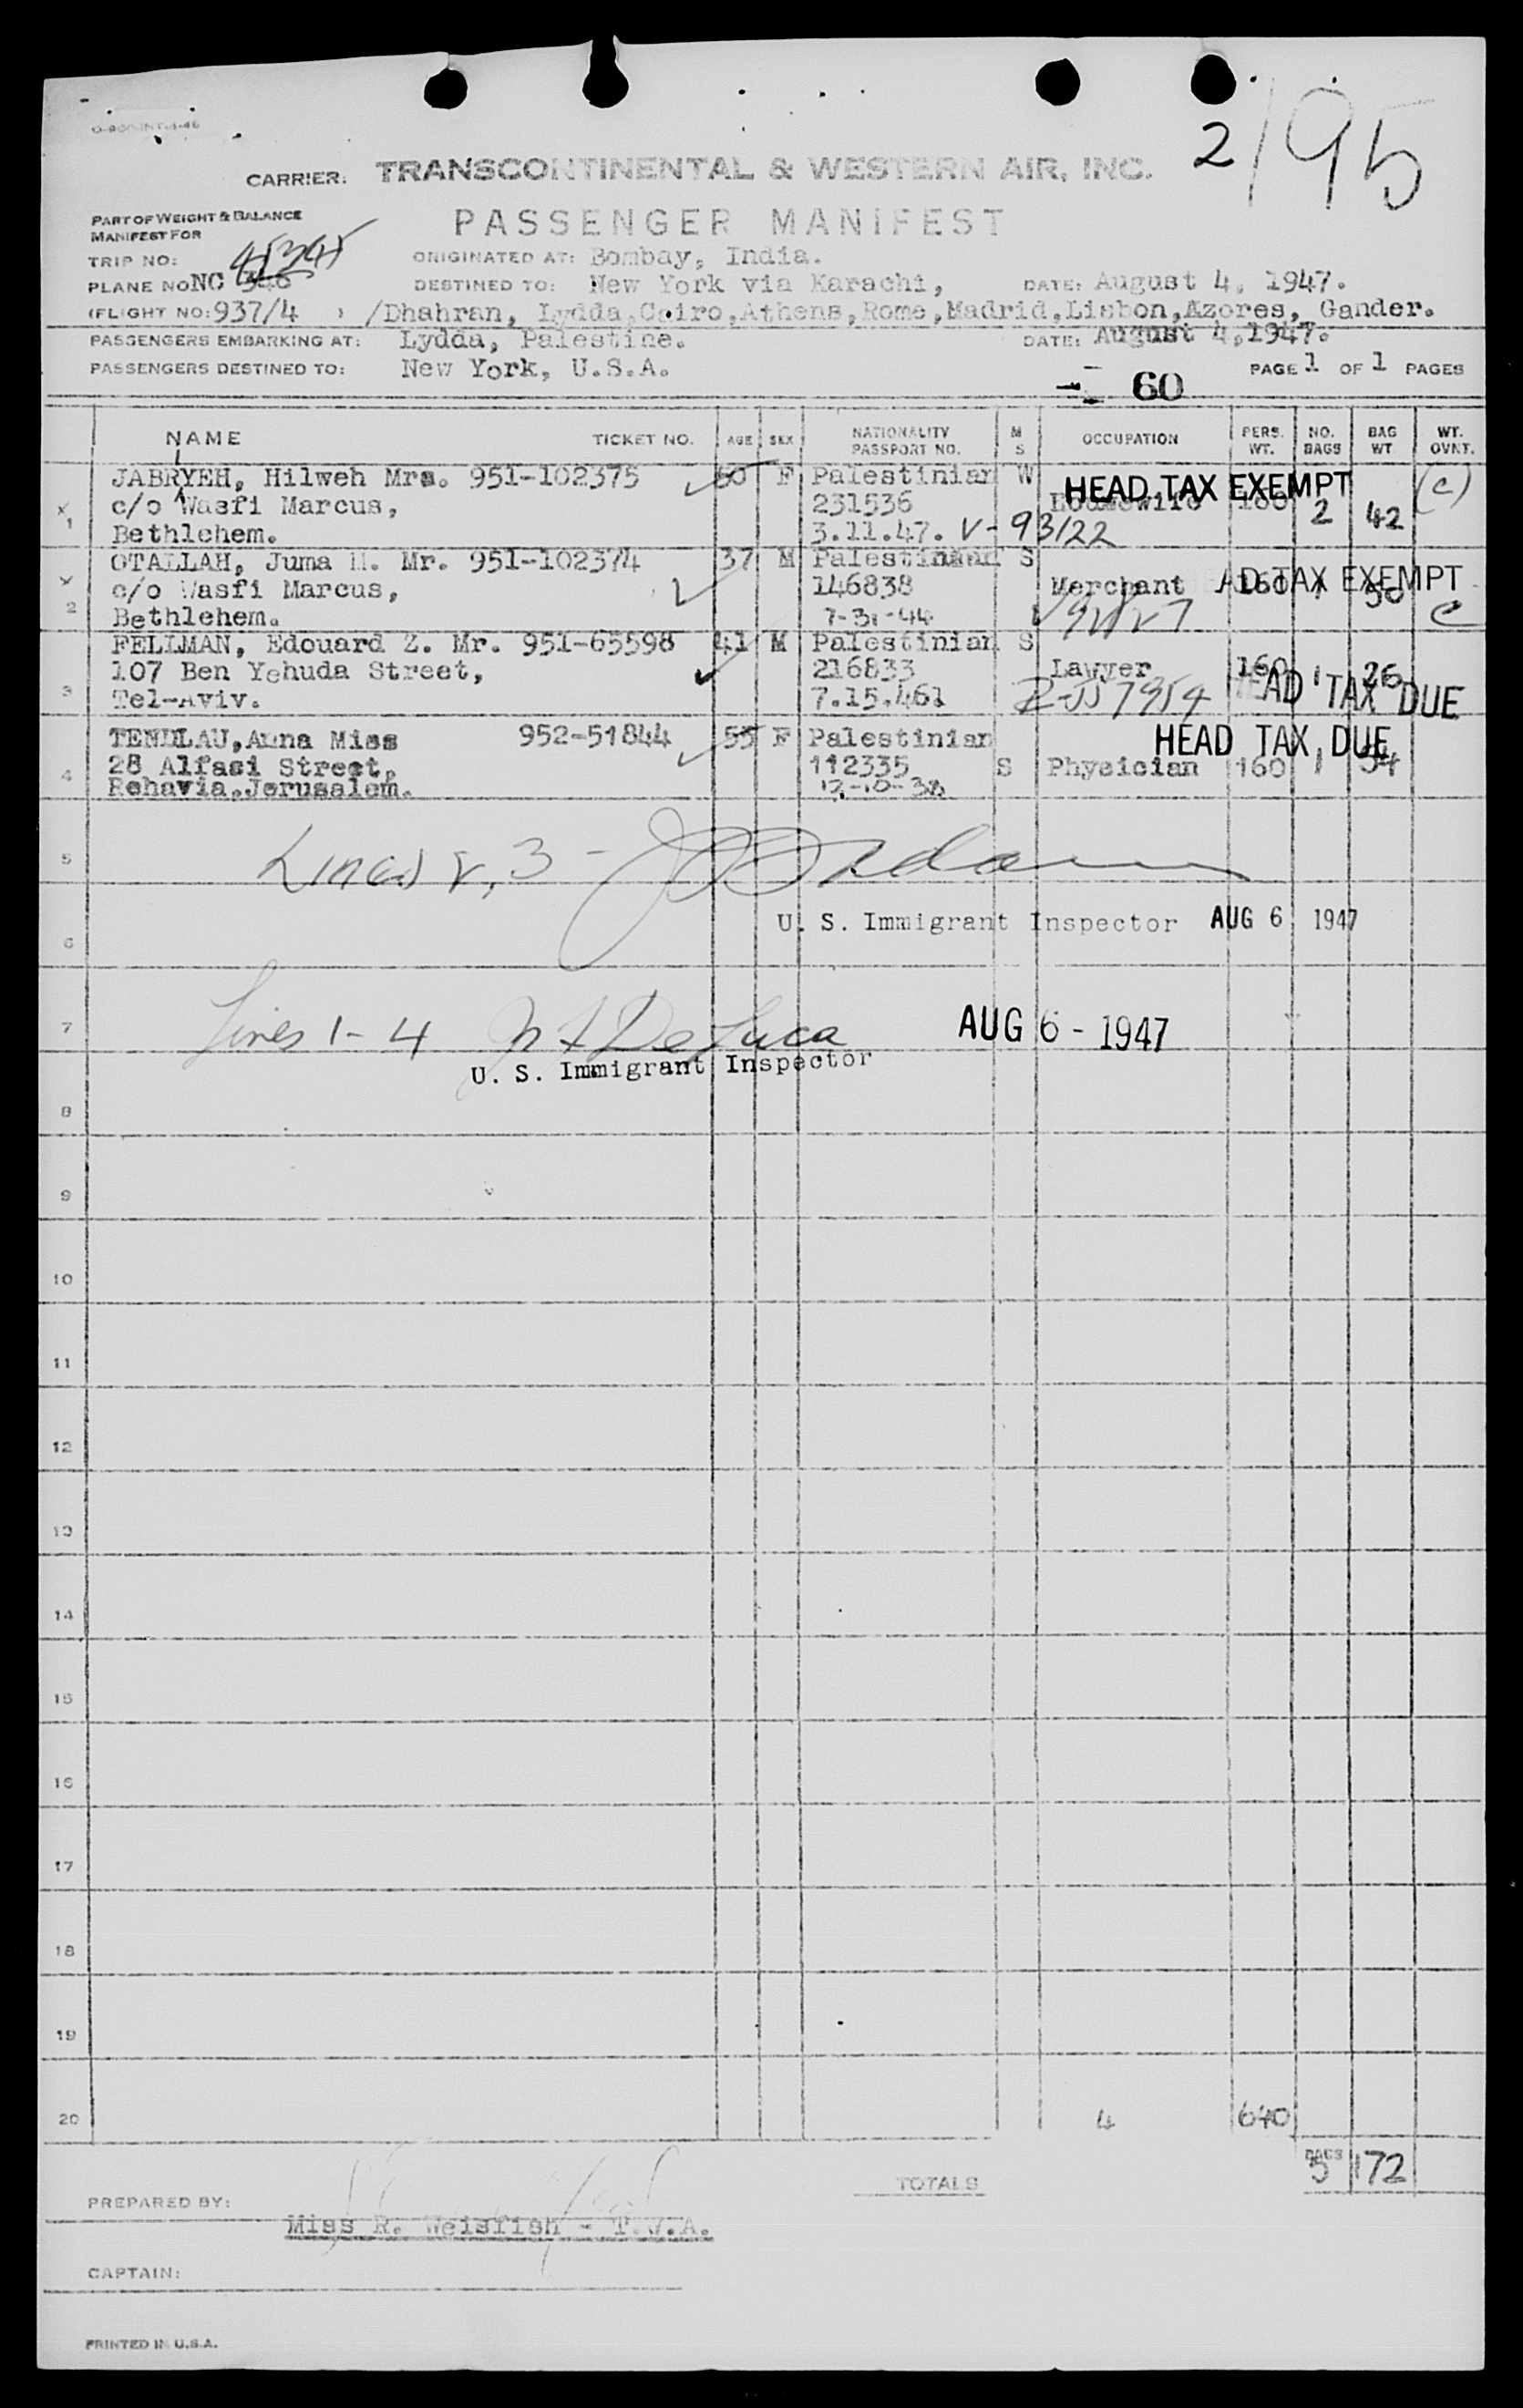 2/95
CARRIER: TRANSCONTINENTAL & WESTERN AIR, INC.
PART OF WEIGHT & BALANCE
MANIFEST FOR
PASSENGER MANIFEST
TRIP NO:
ORIGINATED AT: Bombay, India.
PLANE NO: NC 45345
DESTINED TO: New York via Karachi, DATE: August 4, 1947.
(FLIGHT NO: 937/4 ) /Dhahran, Lydda, Cairo, Athens, Rome, Madrid, Lisbon, Azores, Gander.
PASSENGERS EMBARKING AT: Lydda, Palestine. DATE: August 4, 1947.
PASSENGERS DESTINED TO: New York, U.S.A. PAGE 1 OF 1 PAGES
60
NAME TICKET NO. AGE SEX NATIONALITY PASSPORT NO. M S OCCUPATION PERS. WT. NO. BAGS BAG WT WT. OVNT.
JABRYEH, Hilweh Mrs. 951-102375 60 F Palestinian W HEAD TAX EXEMPT (c)
c/o Wasfi Marcus, 231536 Housewife 160 2 42
1 Bethlehem. 3.11.47. V-93122
OTALLAH, Juma M. Mr. 951-102374 37 M Palestinian S
c/o Wasfi Marcus, 146838 Merchant 160 1 50 HEAD TAX EXEMPT
2 Bethlehem. 7-31-44 c
FELLMAN, Edouard Z. Mr. 951-65598 41 M Palestinian S
107 Ben Yehuda Street, 216833 Lawyer 160 1 26
3 Tel-Aviv. 7.15.46 HEAD TAX DUE
TENDLAU, Anna Miss 952-51844 55 F Palestinian HEAD TAX DUE
4 28 Alfasi Street, 112335 S Physician 160 1 54
Rehavia, Jerusalem. 12-10-38
5 Lines 2, 3 -
6 U. S. Immigrant Inspector AUG 6 1947
7 Lines 1-4 De Luca AUG 6 - 1947
U. S. Immigrant Inspector
8
9
10
11
12
13
14
15
16
17
18
19
20 4 640
TOTALS BAGS 5 172
PREPARED BY:
Miss R. Weisfish - T.W.A.
CAPTAIN:
PRINTED IN U.S.A.